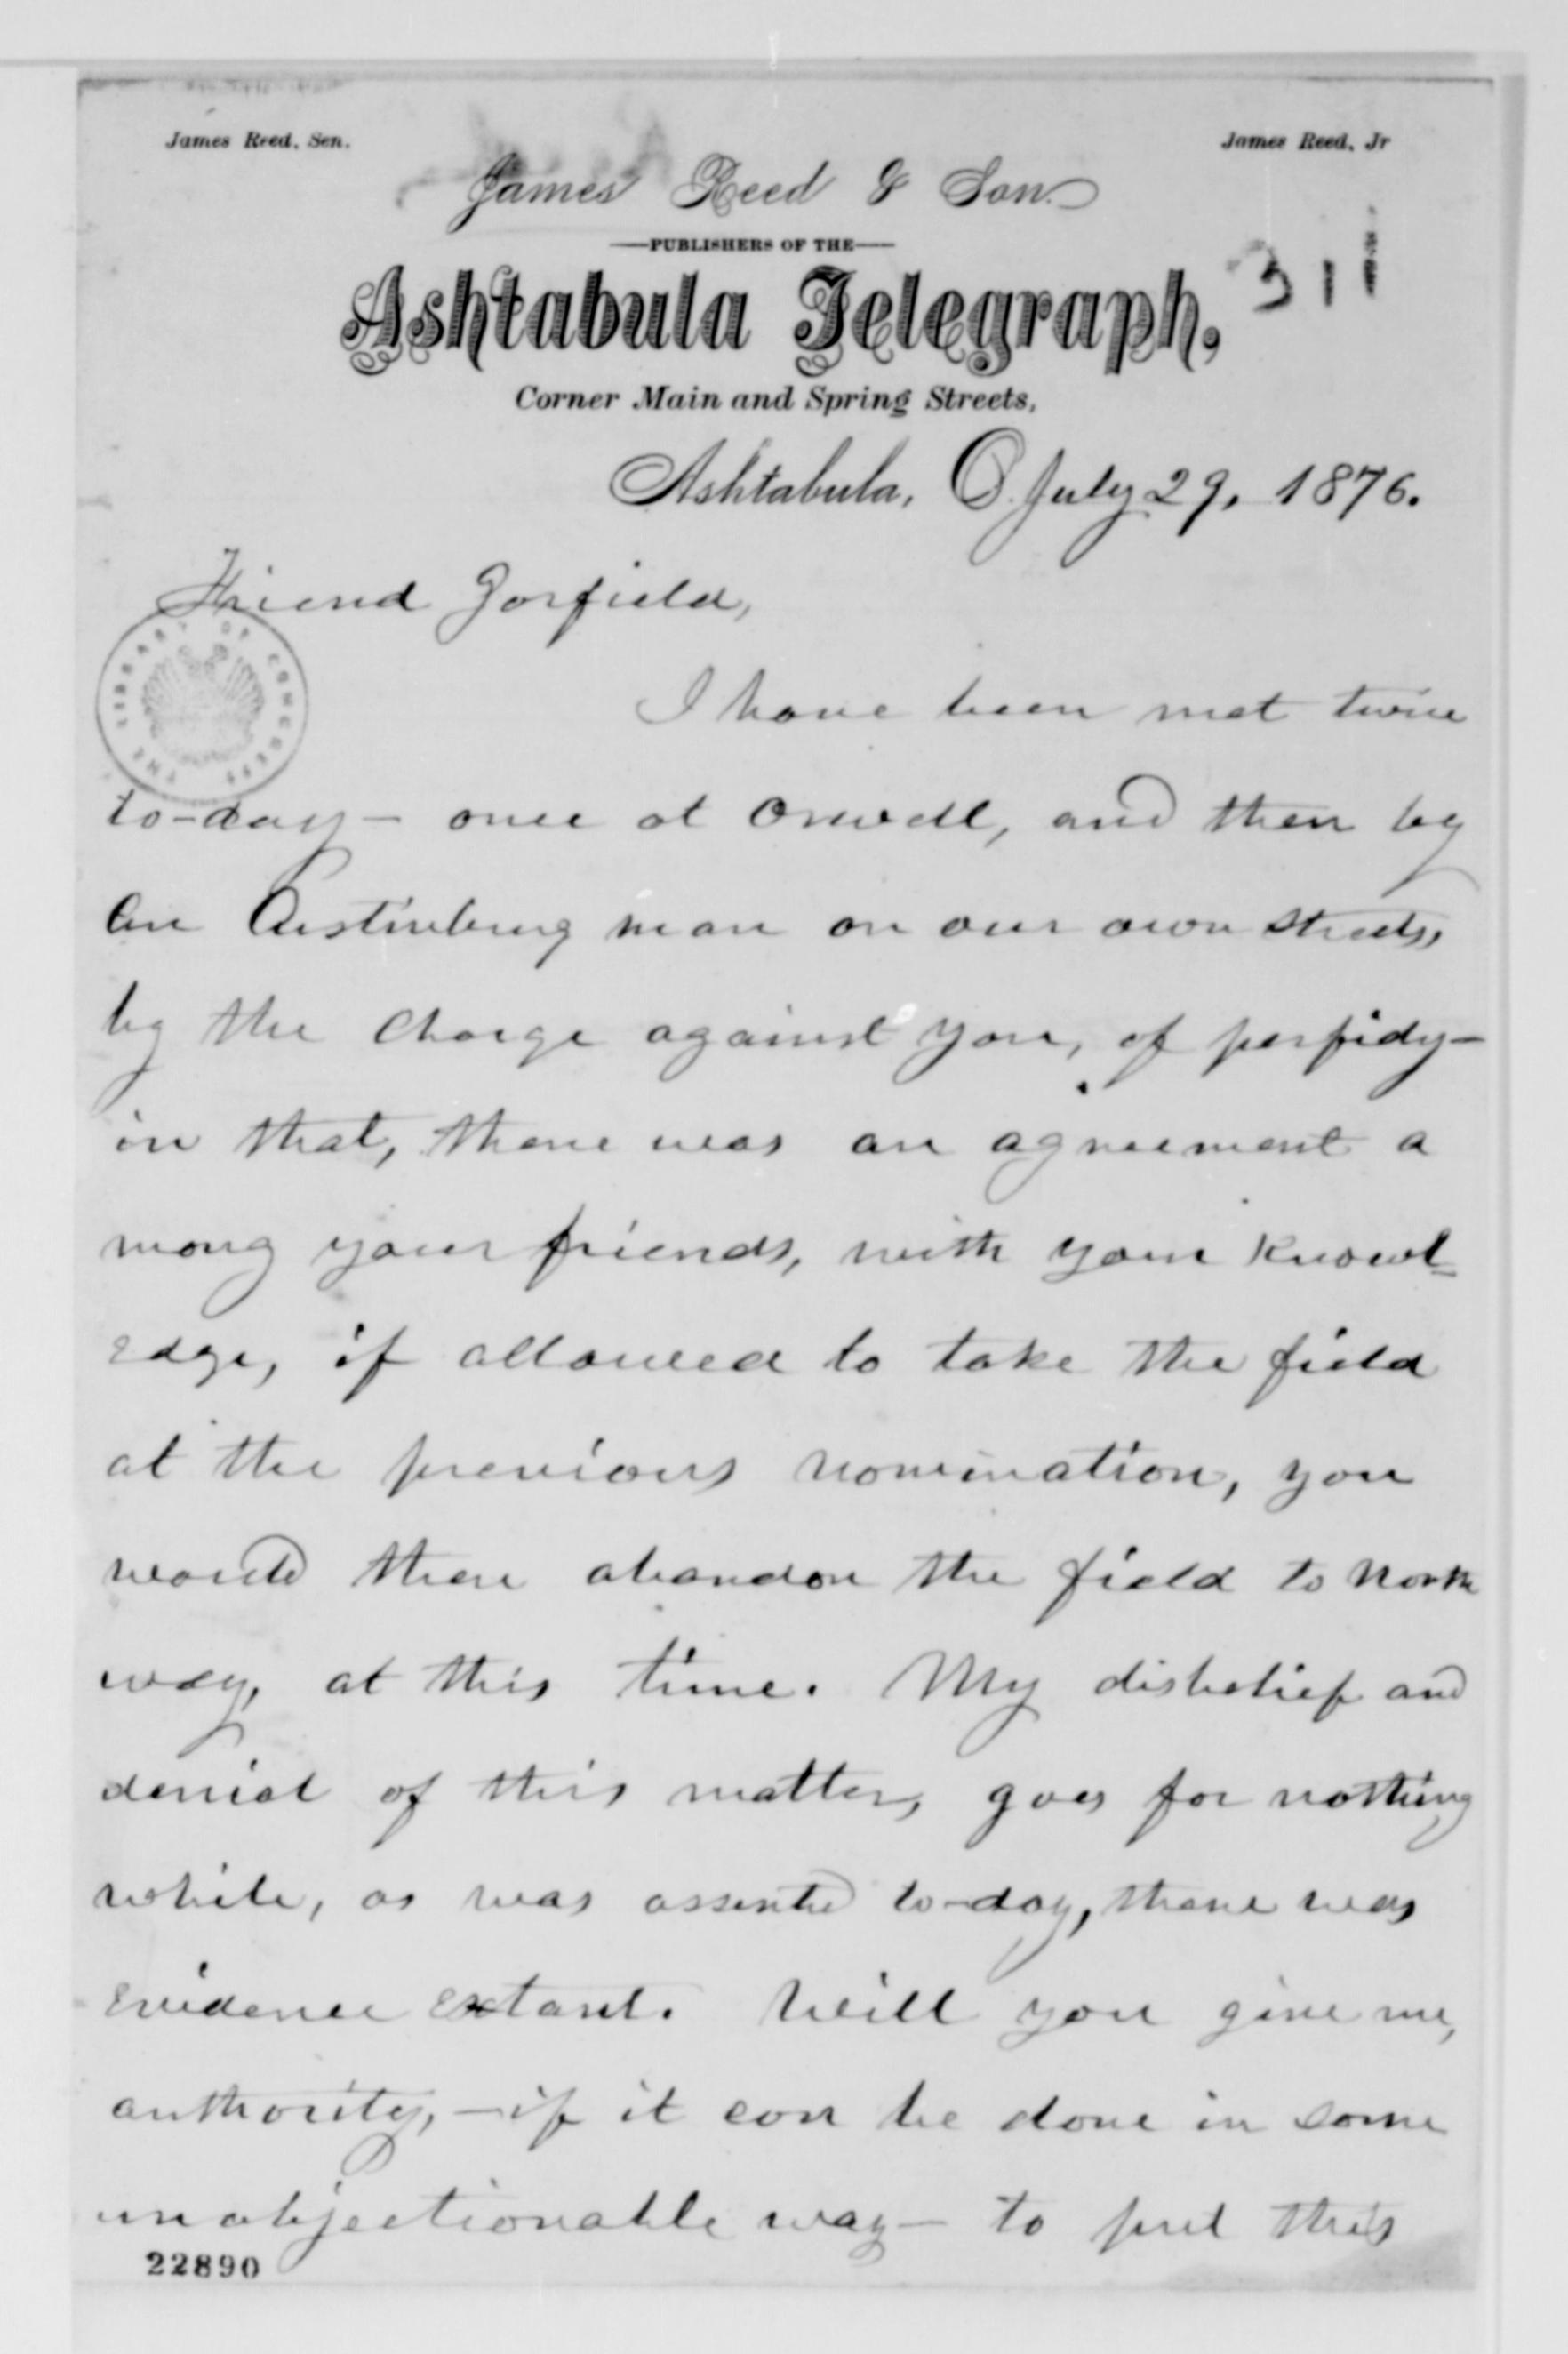 James Reed, Sen.
James Reed, Jr
James Reed & Son.
PUBLISHERS OF THE
Ashtabula Telegraph,
311
Corner Main and Spring Streets,
Ashtabula, O. July 29, 1876.
Friend Garfield,
THE LIBRARY OF CONGRESS
I have been met twice
to-day - once at Orwell, and then by
an Austinburg man on our own streets,
by the charge against you, of perfidy -
in that, there was an agreement a
mong your friends, with your knowl
edge, if allowed to take the field
at the previous nomination, you
would then abandon the field to North
way, at this time. My disbelief and
denial of this matter, goes for nothing
while, as was asserted to-day, there was
evidence extant. Will you give me,
authority, - if it can be done in some
unobjectionable way - to put this
22890